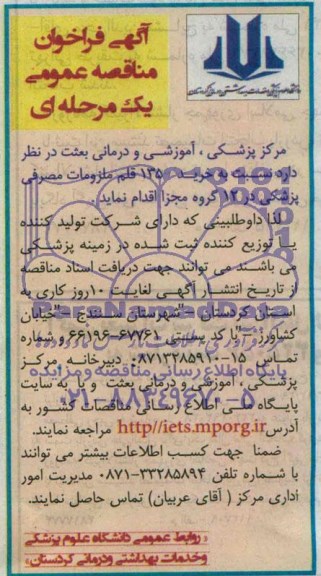 آگهی فراخوان
مناقصه عمومی
یک مرحله ای
مرکز پزشکی ، آموزشی و درمانی بعثت در نظر
دارد نسبت به خرید ۱۳۵۰ قلم ملزومات مصرفی
پزشکی در ۱۲ گروه مجزا اقدام نماید.
لذا داوطلبینی که دارای شرکت تولید کننده
یا توزیع کننده ثبت شده در زمینه پزشکی
می باشند می توانند جهت دریافت اسناد مناقصه
از تاریخ انتشار آگهی لغایت ۱۰روز کاری به
استان کردستان – شهرستان سنندج – خیابان
کشاورز – با کد پستی ۶۷۷۶۱-۶۶۱۹۶ و شماره
تماس ۱۵-۰۸۷۱۳۲۸۵۹۲۰ دبیرخانه مرکز
پزشکی ، آموزشی و درمانی بعثت و یا به سایت
پایگاه ملی اطلاع رسانی مناقصات کشور به
آدرس http//iets.mporg.ir مراجعه نمایند.
ضمنا جهت کسب اطلاعات بیشتر می توانند
با شماره تلفن ۳۳۲۸۵۸۹۴-۰۸۷۱ مدیریت امور
اداری مرکز ( آقای عربیان) تماس حاصل نمایند.
«روابط عمومی دانشگاه علوم پزشکی
وخدمات بهداشتی ودرمانی کردستان»
پایگاه اطلاع رسانی مناقصه و مزایده
۰۲۱-۸۸۳۴۹۶۷۰-۵